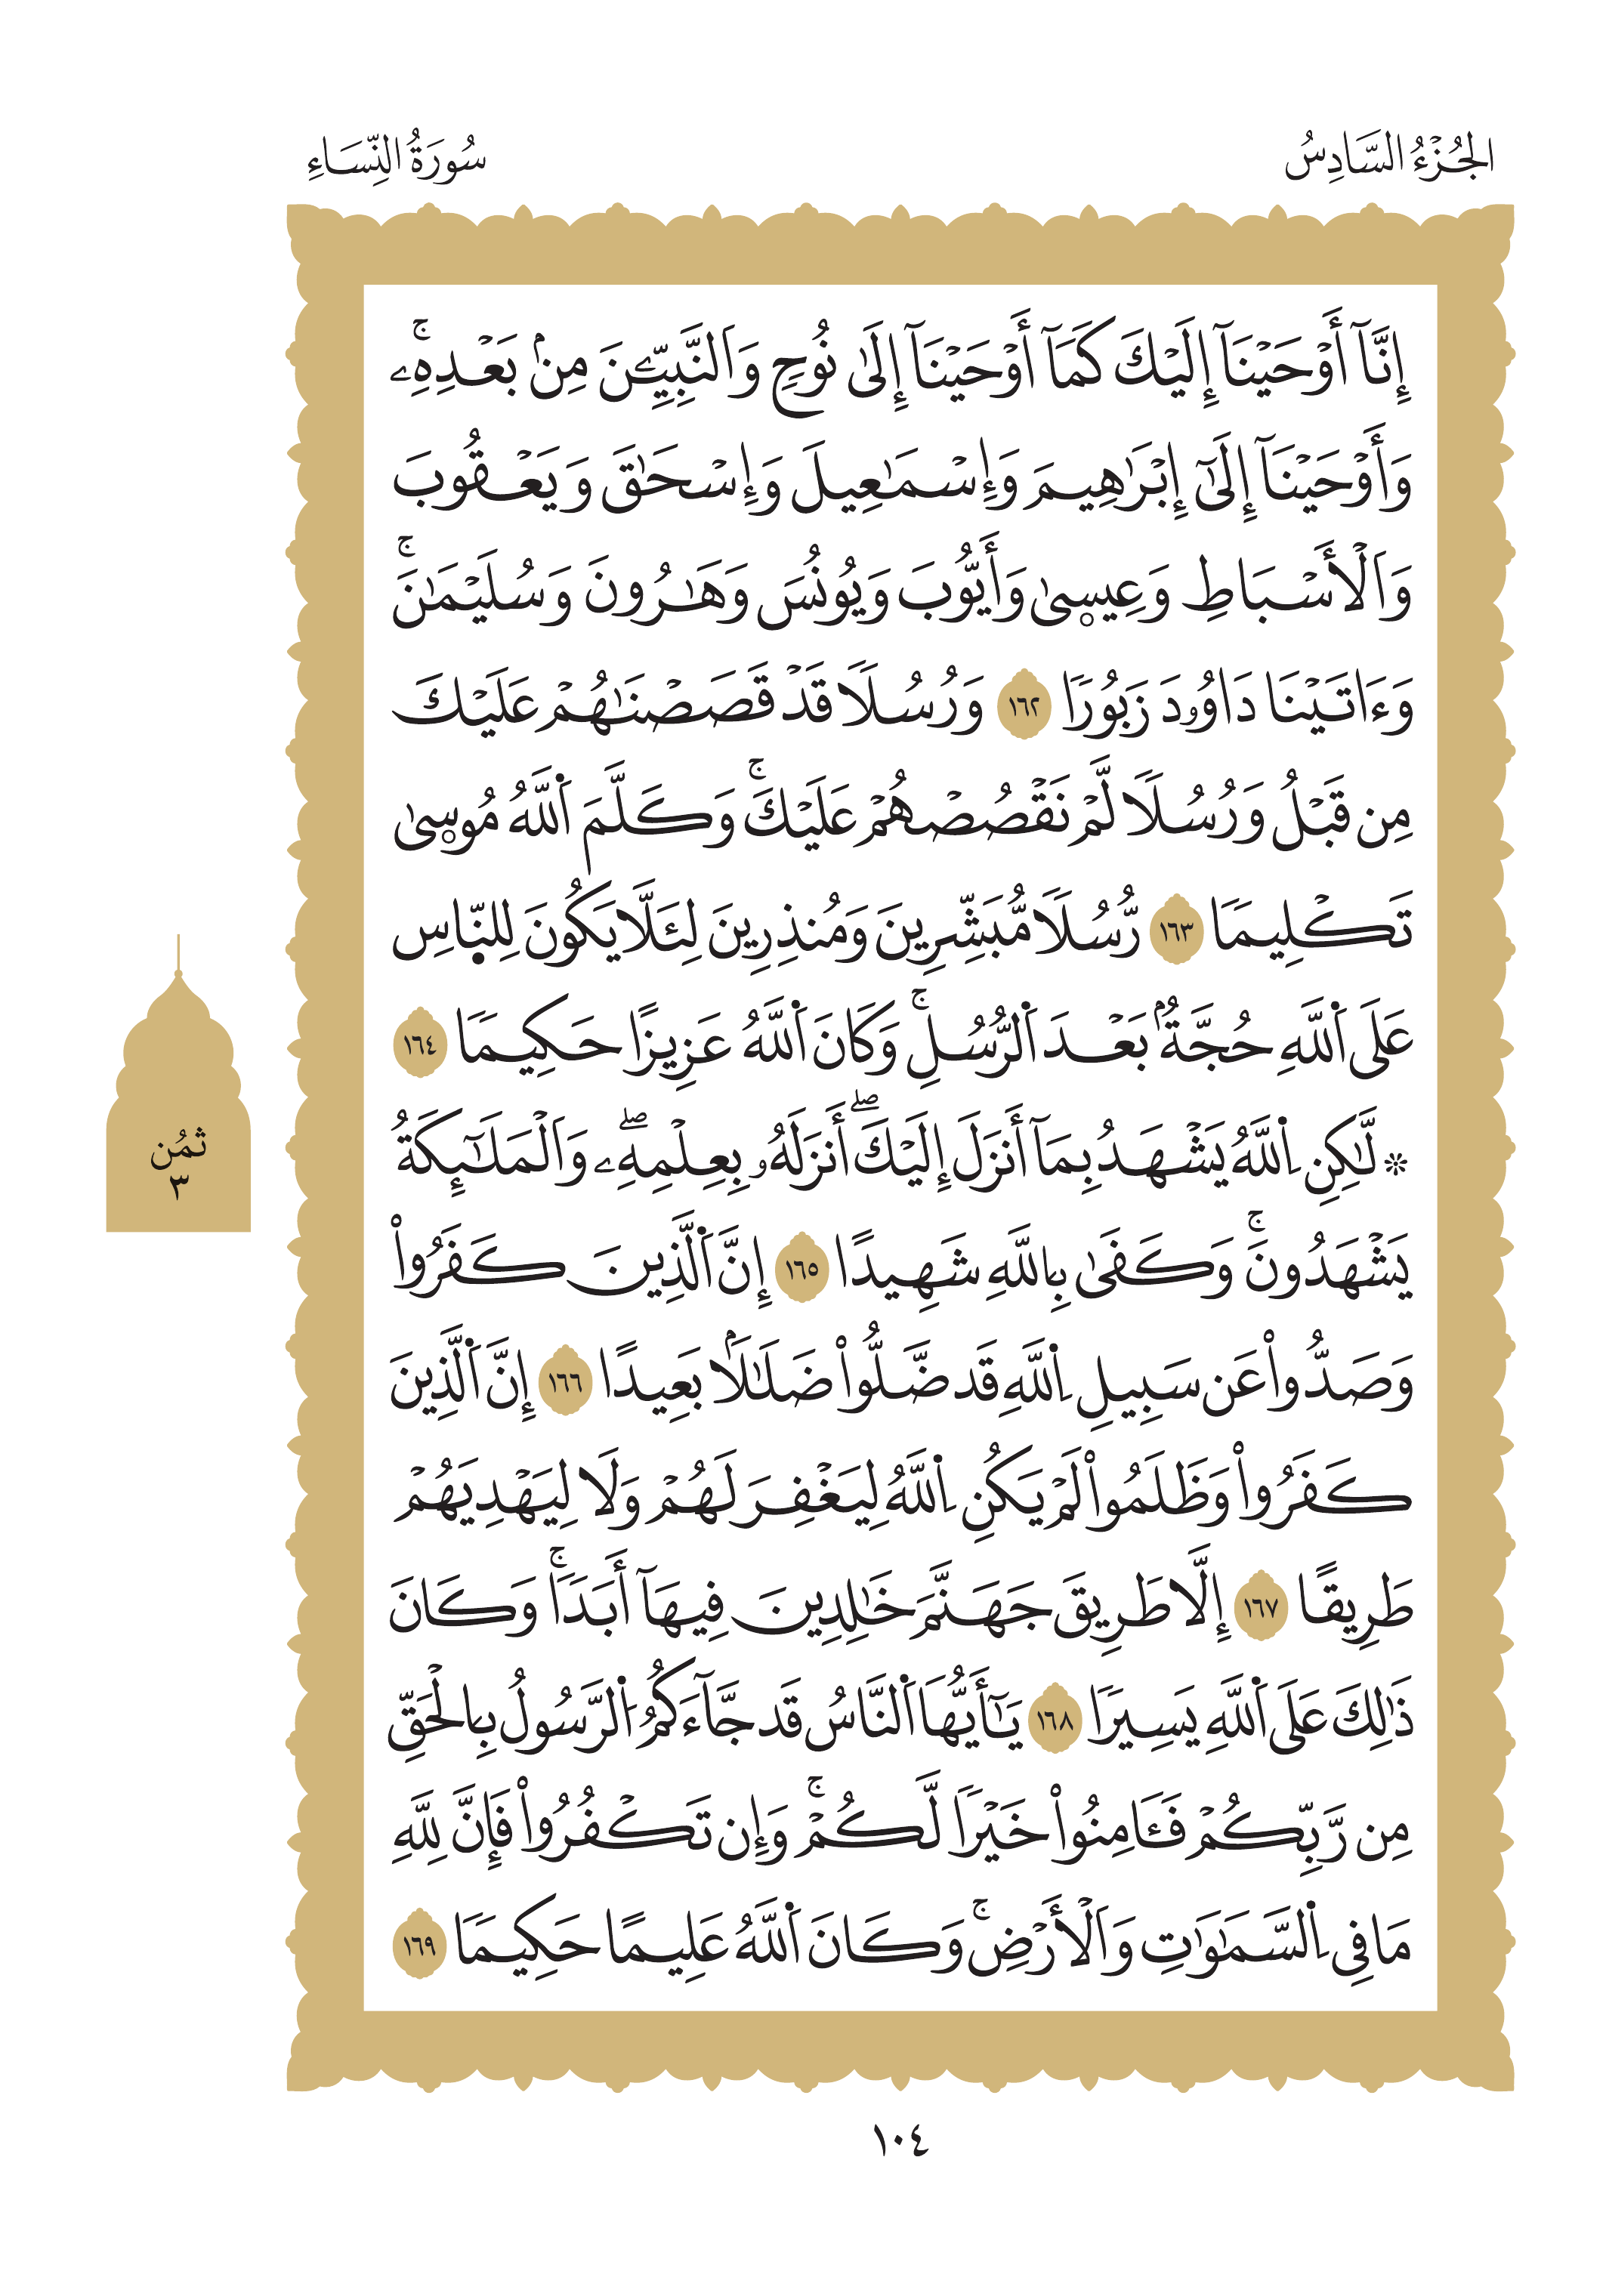 الجُزْءُ السَّادِسُ
سُورَةُ النِّسَاءِ
إِنَّآ أَوْحَيْنَآ إِلَيْكَ كَمَآ أَوْحَيْنَآ إِلَىٰ نُوحٖ وَاَلنَّبِيِّـۧنَ مِنۢ بَعْدِهِۦۚ
وَأَوْحَيْنَآ إِلَىٰٓ إِبْرَٰهِيمَ وَإِسْمَٰعِيلَ وَإِسْحَٰقَ وَيَعْقُوبَ
وَاَلْأَسْبَاطِ وَعِيسۭىٰ وَأَيُّوبَ وَيُونُسَ وَهَٰرُونَ وَسُلَيْمَٰنَۚ
وَءَاتَيْنَا دَاوُۥدَ زَبُورٗا ١٦٢ وَرُسُلٗا قَدْ قَصَصْنَٰهُمْ عَلَيْكَ
مِن قَبْلُ وَرُسُلٗا لَّمْ نَقْصُصْهُمْ عَلَيْكَۚ وَكَلَّمَ اَللَّهُ مُوسۭىٰ
تَكْلِيمٗا ١٦٣ رُّسُلٗا مُّبَشِّرِينَ وَمُنذِرِينَ لِئَلَّا يَكُونَ لِلنّ۪اسِ
عَلَى اَللَّهِ حُجَّةُۢ بَعْدَ اَلرُّسُلِۚ وَكَانَ اَللَّهُ عَزِيزًا حَكِيمٗا ١٦٤
۞ لَّٰكِنِ اِللَّهُ يَشْهَدُ بِمَآ أَنزَلَ إِلَيْكَۖ أَنزَلَهُۥ بِعِلْمِهِۦۖ وَاَلْمَلَٰٓئِكَةُ
يَشْهَدُونَۚ وَكَفَىٰ بِاللَّهِ شَهِيدًا ١٦٥ إِنَّ اَلَّذِينَ كَفَرُواْ
وَصَدُّواْ عَن سَبِيلِ اِللَّهِ قَد ضَّلُّواْ ضَلَٰلَۢا بَعِيدًا ١٦٦ إِنَّ اَلَّذِينَ
كَفَرُواْ وَظَلَمُواْ لَمْ يَكُنِ اِللَّهُ لِيَغْفِرَ لَهُمْ وَلَا لِيَهْدِيَهُمْ
طَرِيقًا ١٦٧ إِلَّا طَرِيقَ جَهَنَّمَ خَٰلِدِينَ فِيهَآ أَبَدٗاۚ وَكَانَ
ذَٰلِكَ عَلَى اَللَّهِ يَسِيرٗا ١٦٨ يَٰٓأَيُّهَا اَلنَّاسُ قَد جَّآءَكُمُ اُلرَّسُولُ بِالْحَقِّ
مِن رَّبِّكُمْ فَـَٔامِنُواْ خَيْرٗا لَّكُمْۚ وَإِن تَكْفُرُواْ فَإِنَّ لِلَّهِ
مَا فِي اِلسَّمَٰوَٰتِ وَاَلْأَرْضِۚ وَكَانَ اَللَّهُ عَلِيمًا حَكِيمٗا ١٦٩
ثُمُن
٣
١٠٤